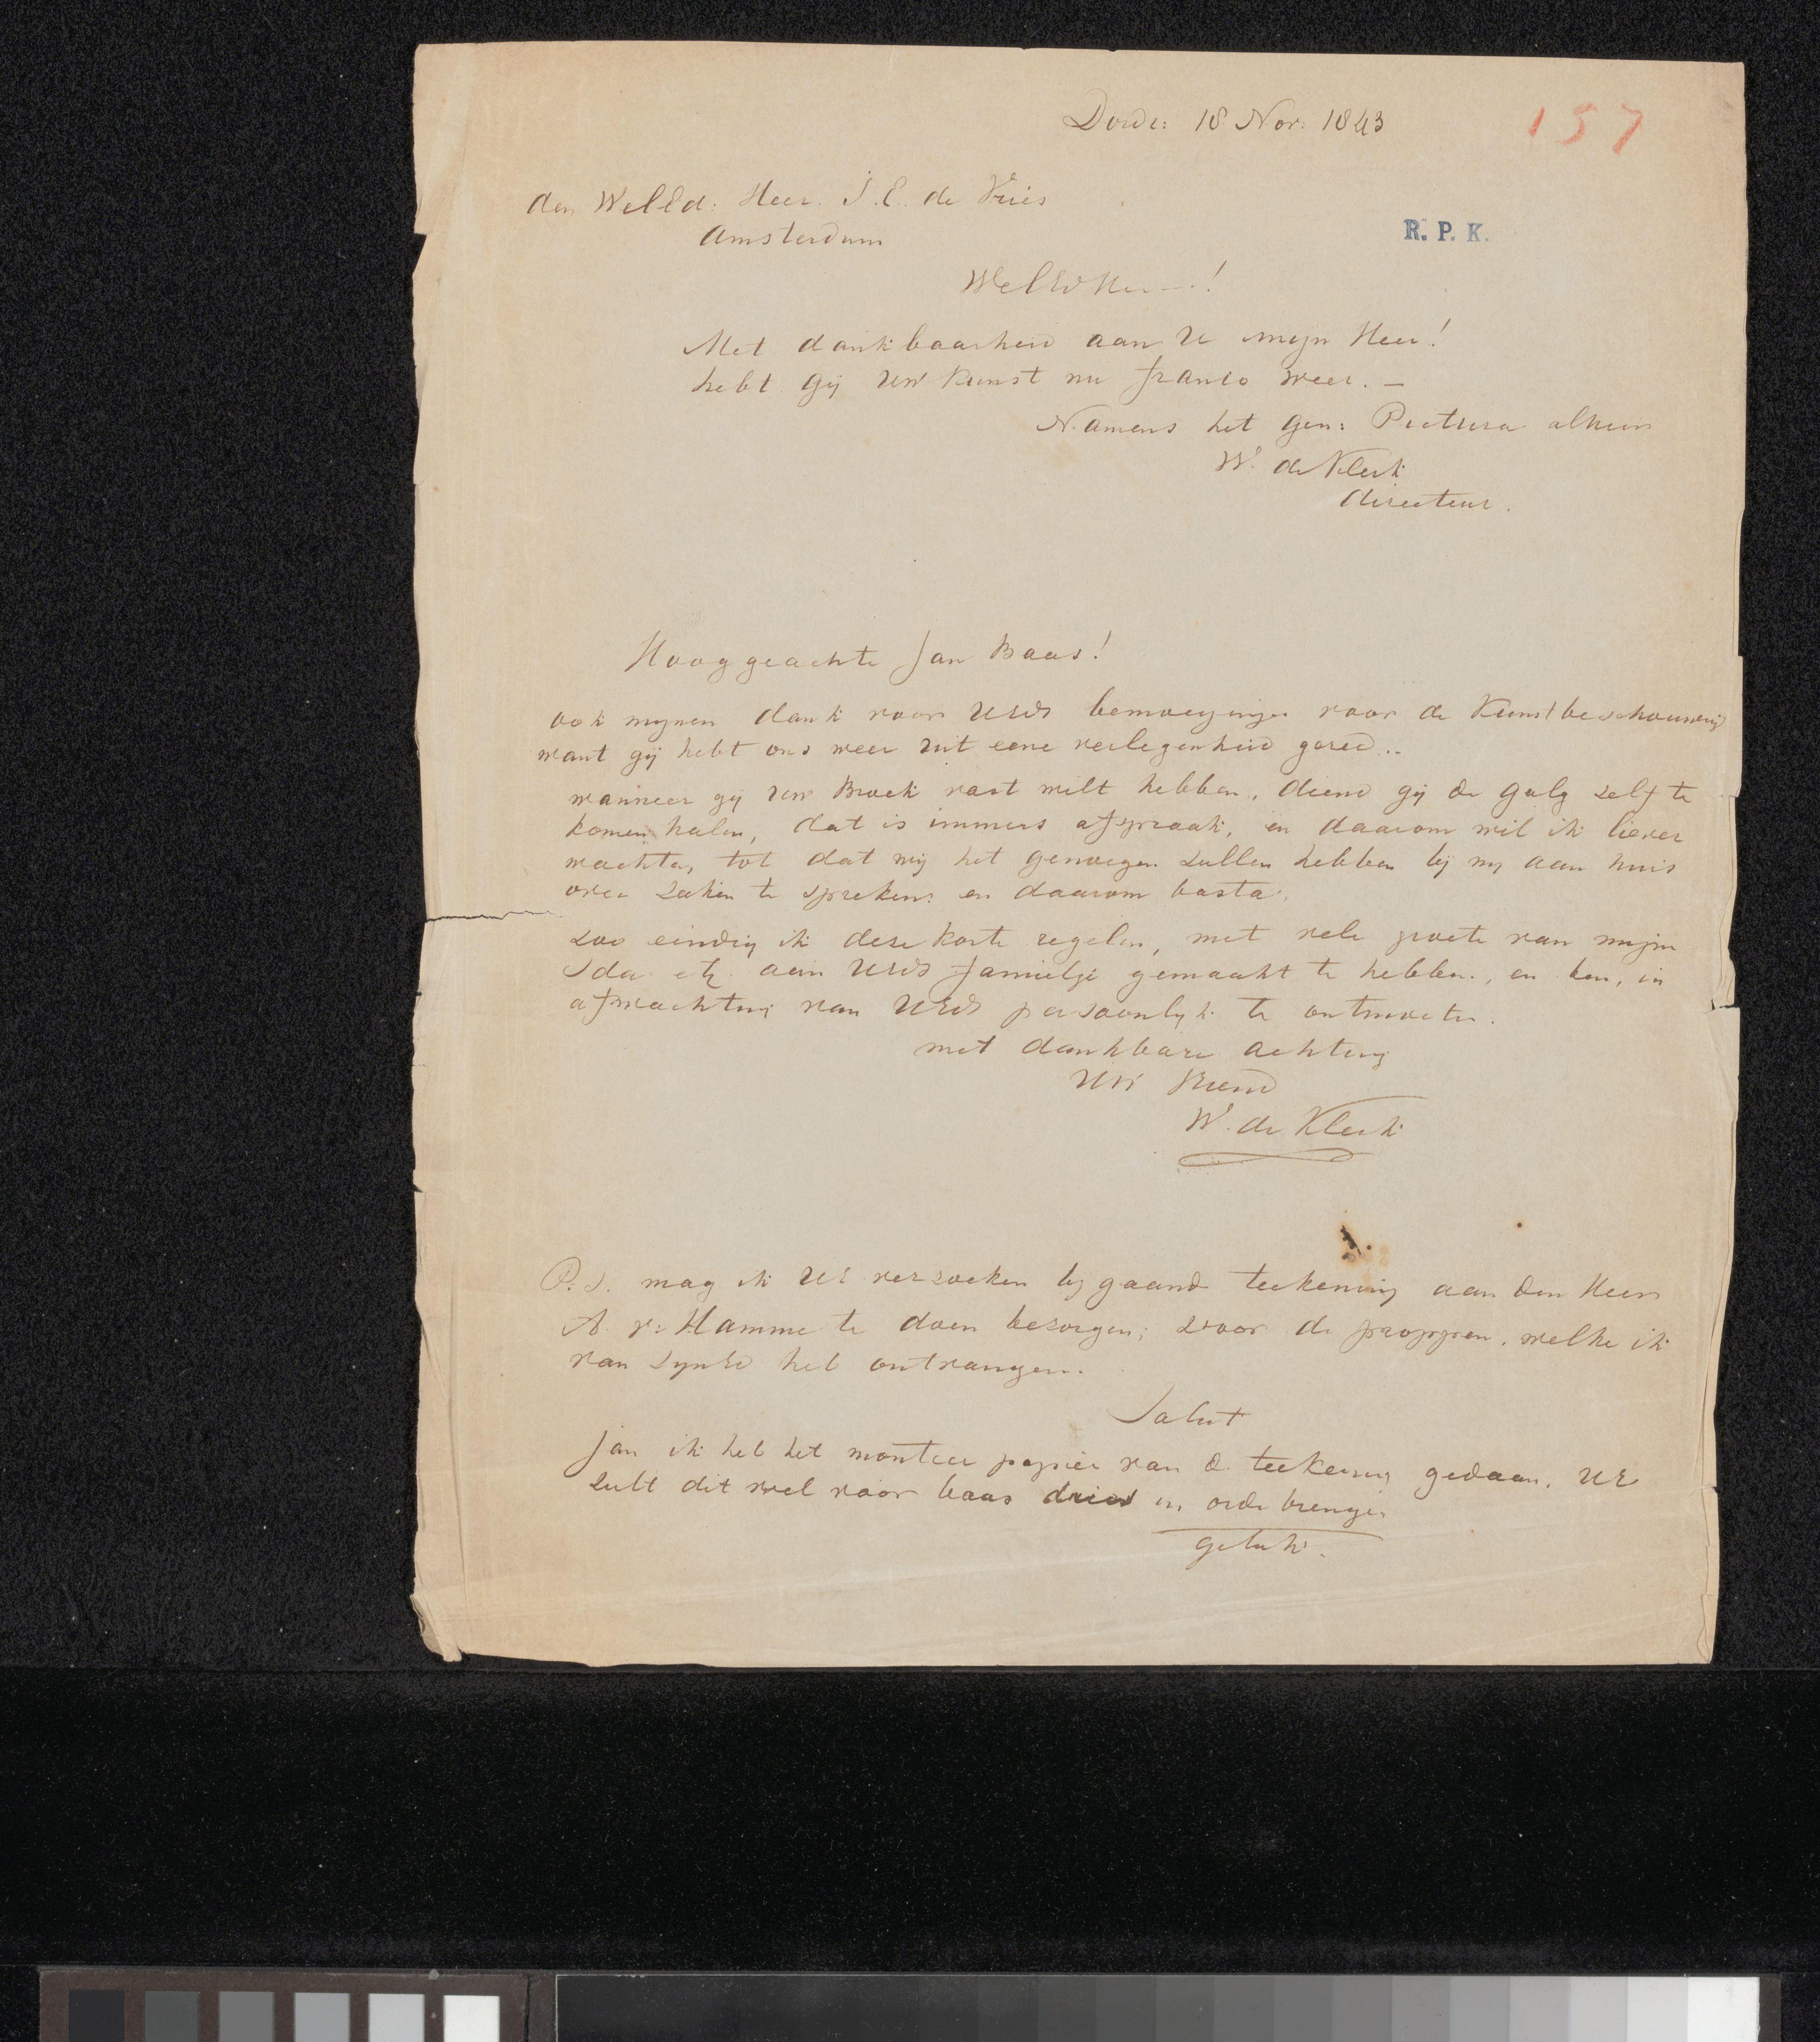 Dordt: 18 Nov: 1843
157
den WelEd: Heer. J. C. de Vries
Amsterdam
R. P. K.
WelEdHeer!
Met dankbaarheid aan U mijn Heer!
hebt gij uw kunst nu franco weer. –
Namens het gen: Pictura alhier
W. de Klerk
directeur.
Hooggeachte Jan Baas!
ook mynen dank voor UEds bemoeyingen voor de Kunstbeschouwing
want gij hebt ons weer uit eene verlegenheid gered..
wanneer gy uw Broek vast wilt hebben, diend gij de galg zelf te
komen halen, dat is immers afspraak, en daarom wil ik liever
wachten, tot dat wij het genoegen zullen hebben bij my aan huis
over zaken te spreken: en daarom basta.
zoo eindig ik deze korte regelen, met vele groete van mijn
Ida etz. aan UEds familje gemaakt te hebben, en ben, in
afwachting van UEds persoonlyk te ontmoeten.
met dankbare achting
Uw Vriend
W. de Klerk
P.S. mag ik UE verzoeken bygaand teekening aan den Heer
A. v: Hamme te doen bezorgen; voor de proppen. welke ik
van zynEd heb ontvangen.
Salut
Jan ik heb het monteer papier van de teekening gedaan. UE
zult dit wel voor baas dries in orde brengen
geluk.